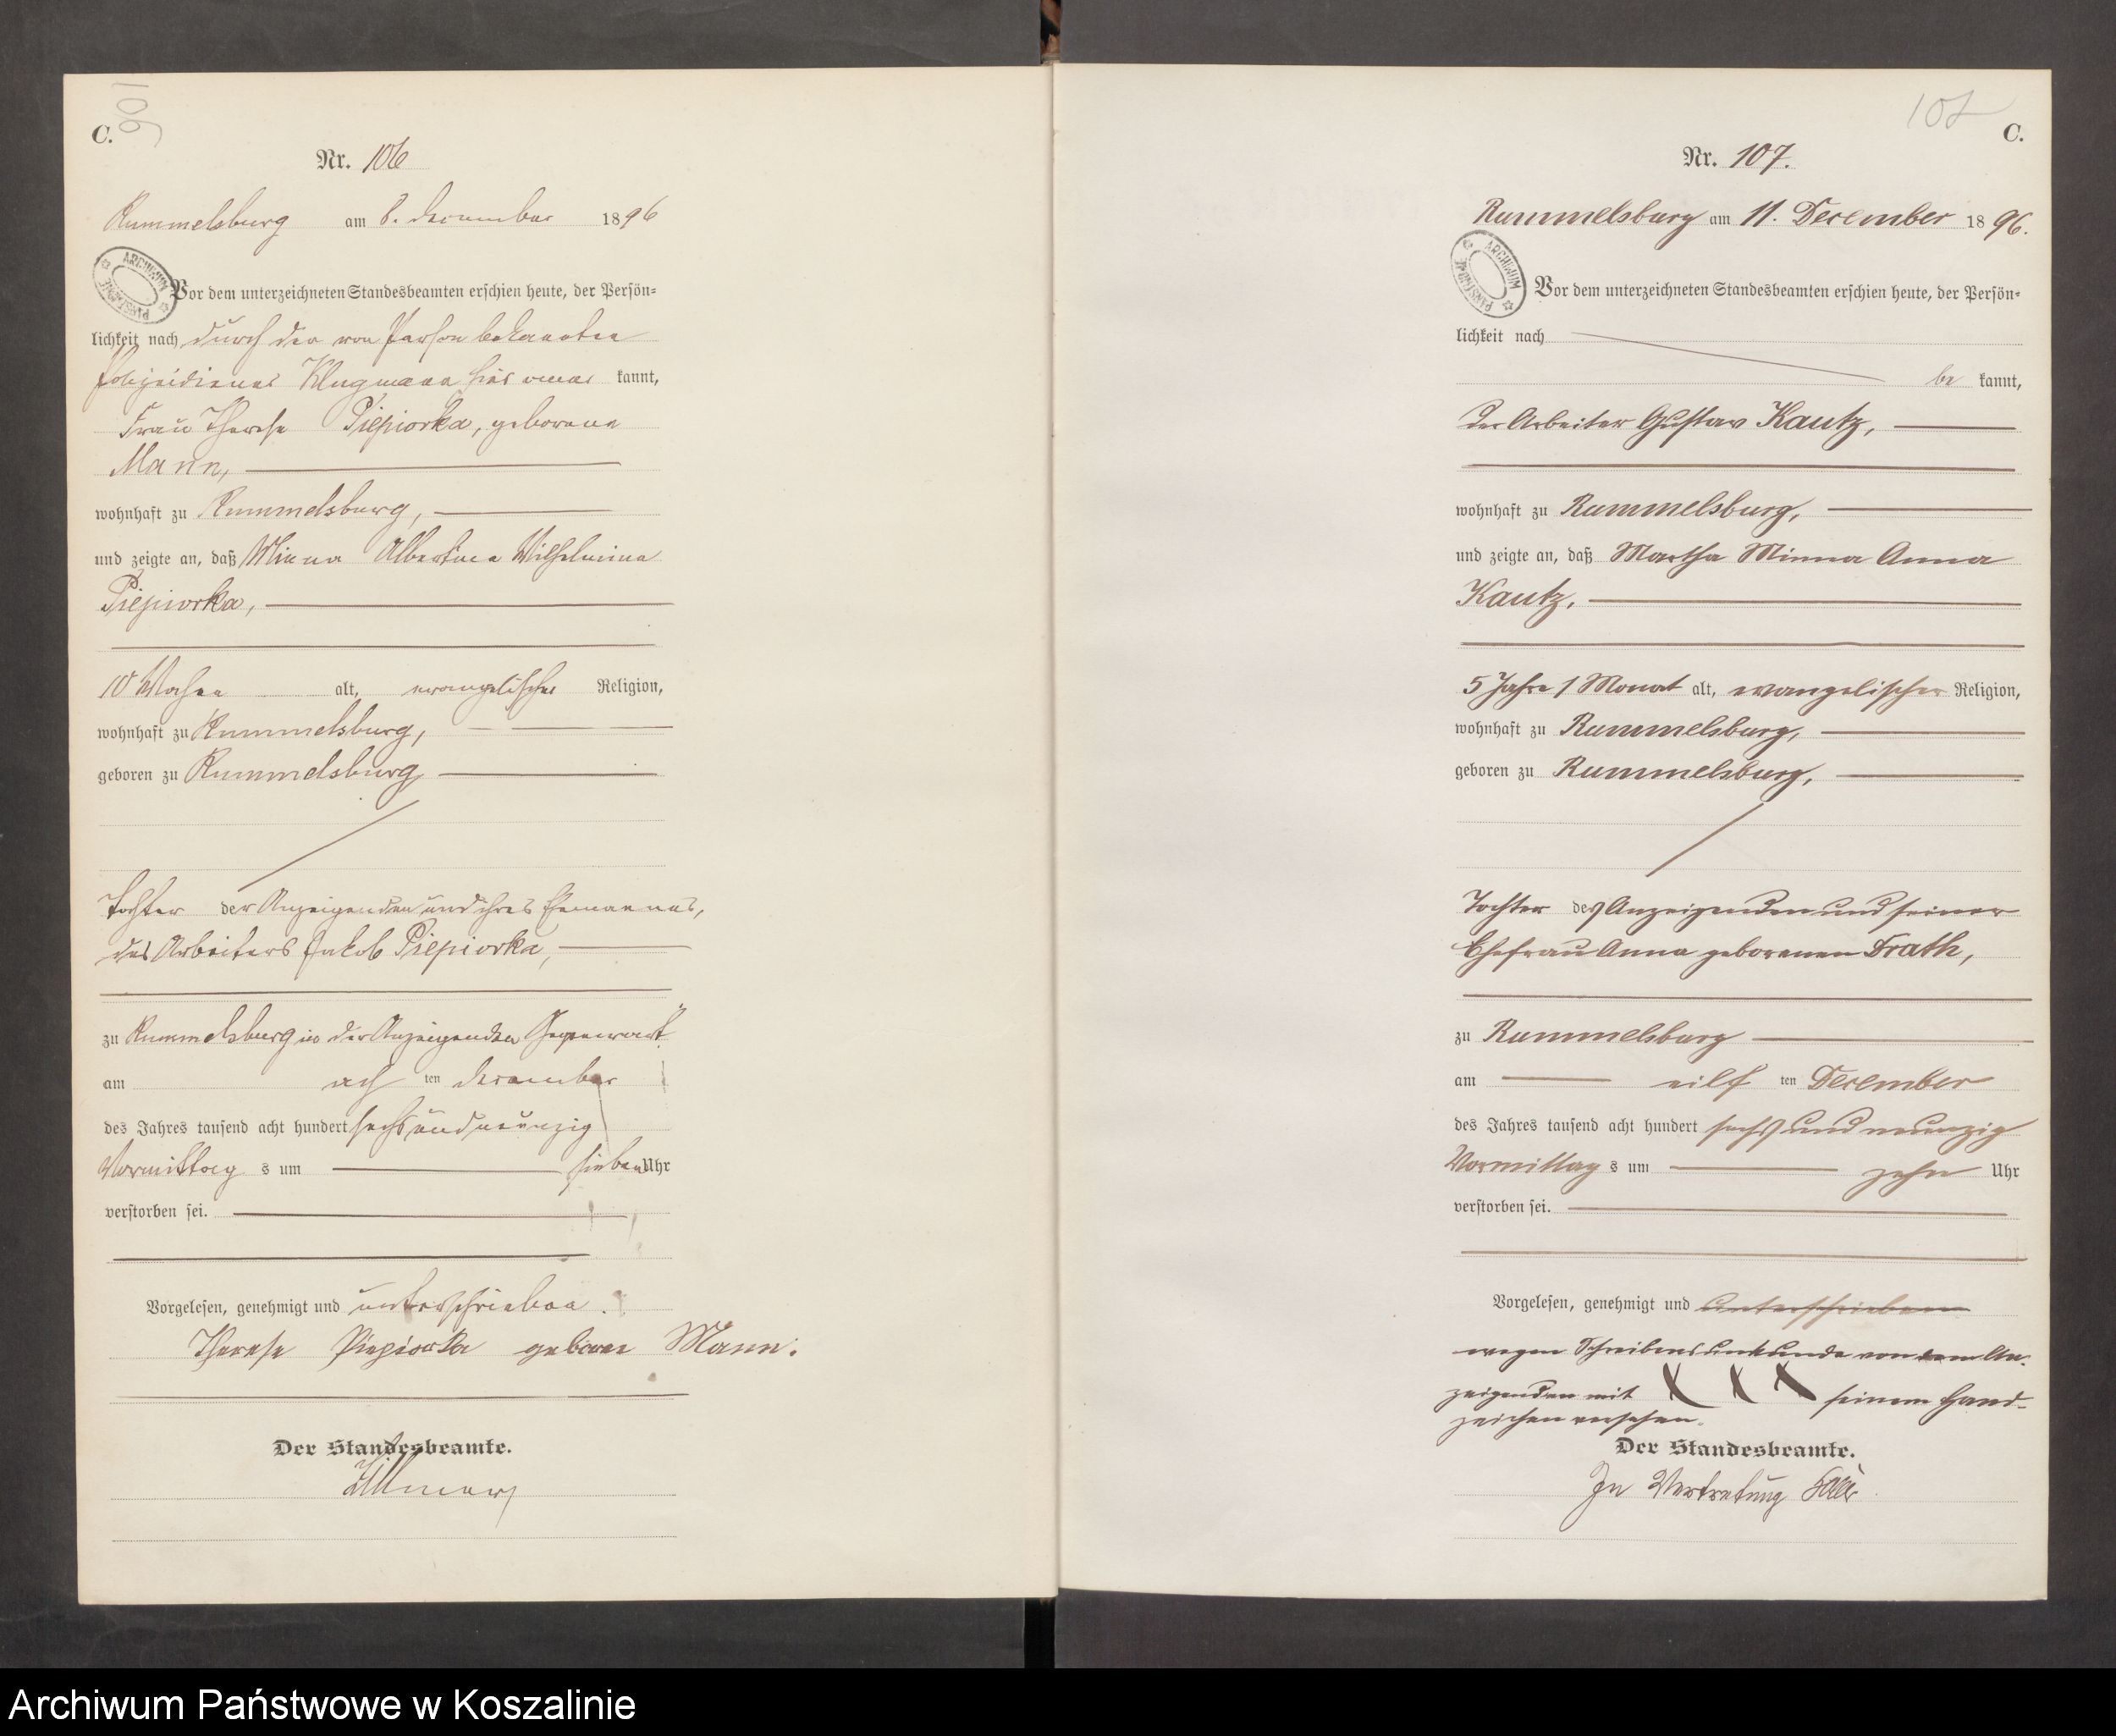 106
C.
Nr. 106
Rummelsburg am 8. December 1896
ARCHIWUM PAŃSTWOWE
Vor dem unterzeichneten Standesbeamten erschien heute, der Persön-
lichkeit nach durch den von Person bekannten
Polizeidiener Klugmann hier kannt,
Frau Therese Piepiorka, geborene
Mann,
wohnhaft zu Rummelsburg,
und zeigte an, daß Minna Albertine Wilhelmine
Piepiorka,
10 Wochen alt, evangelischer Religion,
wohnhaft zu Rummelsburg,
geboren zu Rummelsburg
Tochter der Anzeigenden und ihres Ehemannes,
des Arbeiters Jakob Piepiorka,
zu Rummelsburg in der Anzeigenden Gegenwart
am ach ten December
des Jahres tausend acht hundert sechs und neunzig
Vormittag s um sieben Uhr
verstorben sei.
Vorgelesen, genehmigt und unterschrieben.
Therese Piepiorka geborne Mann.
Der Standesbeamte.
107
C.
Nr. 107.
Rummelsburg am 11. December 1896.
ARCHIWUM PAŃSTWOWE
Vor dem unterzeichneten Standesbeamten erschien heute, der Persön-
lichkeit nach
be kannt,
der Arbeiter Gustav Kautz,
wohnhaft zu Rummelsburg,
und zeigte an, daß Martha Minna Anna
Kautz,
5 Jahre 1 Monat alt, evangelischer Religion,
wohnhaft zu Rummelsburg,
geboren zu Rummelsburg,
Tochter des Anzeigenden und seiner
Ehefrau Anna geborenen Drath,
zu Rummelsburg
am eilf ten December
des Jahres tausend acht hundert sechs und neunzig
Vormittag s um zehn Uhr
verstorben sei.
Vorgelesen, genehmigt und unterschrieben
wegen Schreibensunkunde von dem An-
zeigenden mit XXX seinem Hand-
zeichen versehen.
Der Standesbeamte.
In Vertretung
Archiwum Państwowe w Koszalinie